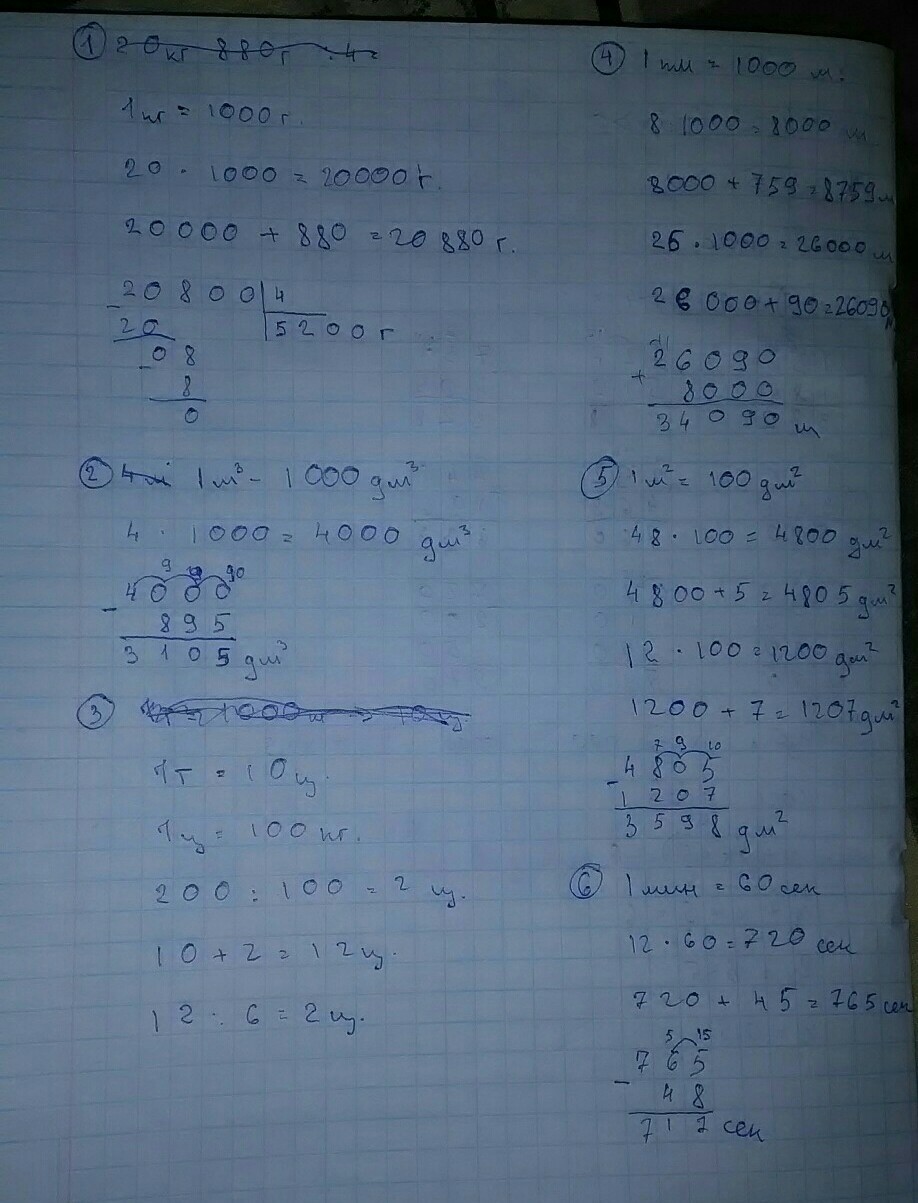 ① 20кг 880г : 4 =
1кг = 1000г.
20 · 1000 = 20000г.
20000 + 880 = 20880г.
20800 | 4
- 20 | 5200г
08
- 8
0
② 1м³ - 1000дм³
4 · 1000 = 4000 дм³
9 9 10
4000
- 895
3105 дм³
③
1т = 10ц.
1ц = 100кг.
200 : 100 = 2 ц.
10 + 2 = 12ц.
12 : 6 = 2ц.
④ 1км = 1000 м.
8 · 1000 = 8000 м
8000 + 759 = 8759м
26 · 1000 = 26000 м
26000 + 90 = 26090м
26090
+ 8000
34090 м
⑤ 1м² = 100дм²
48 · 100 = 4800 дм²
4800 + 5 = 4805дм²
12 · 100 = 1200дм²
1200 + 7 = 1207дм²
7 9 10
4805
- 1207
3598 дм²
⑥ 1мин = 60сек
12 · 60 = 720 сек
720 + 45 = 765сек
5 15
765
- 48
717 сек